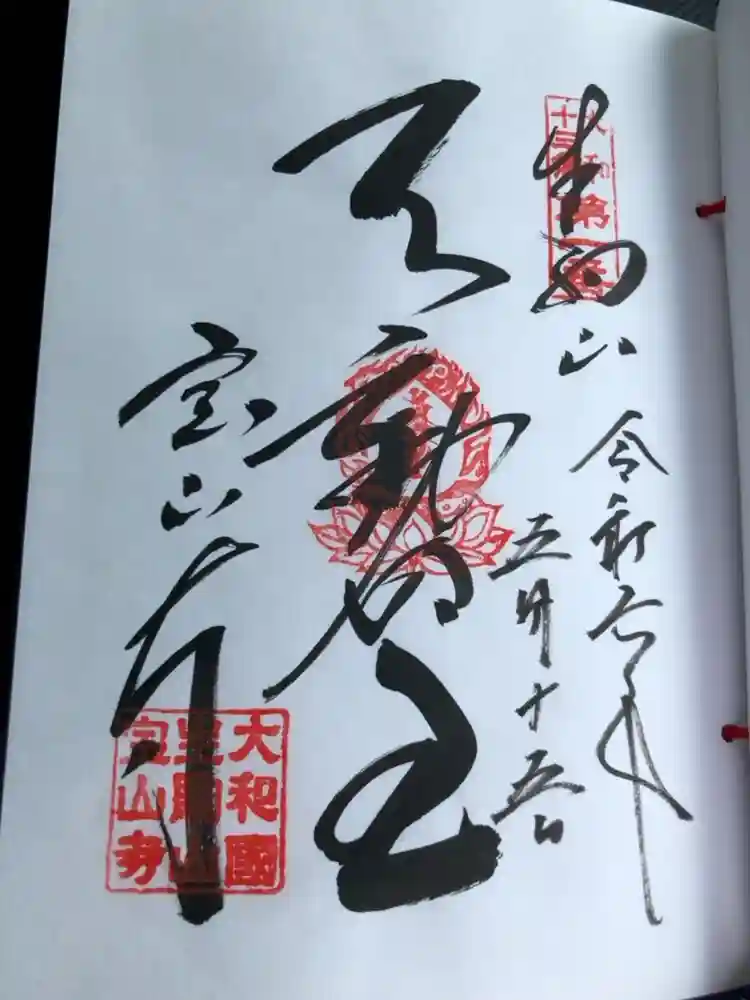 生駒山
令和六年
五月十五日
不動明王
宝山寺
大和
第一番
大和國
生駒山
宝山寺